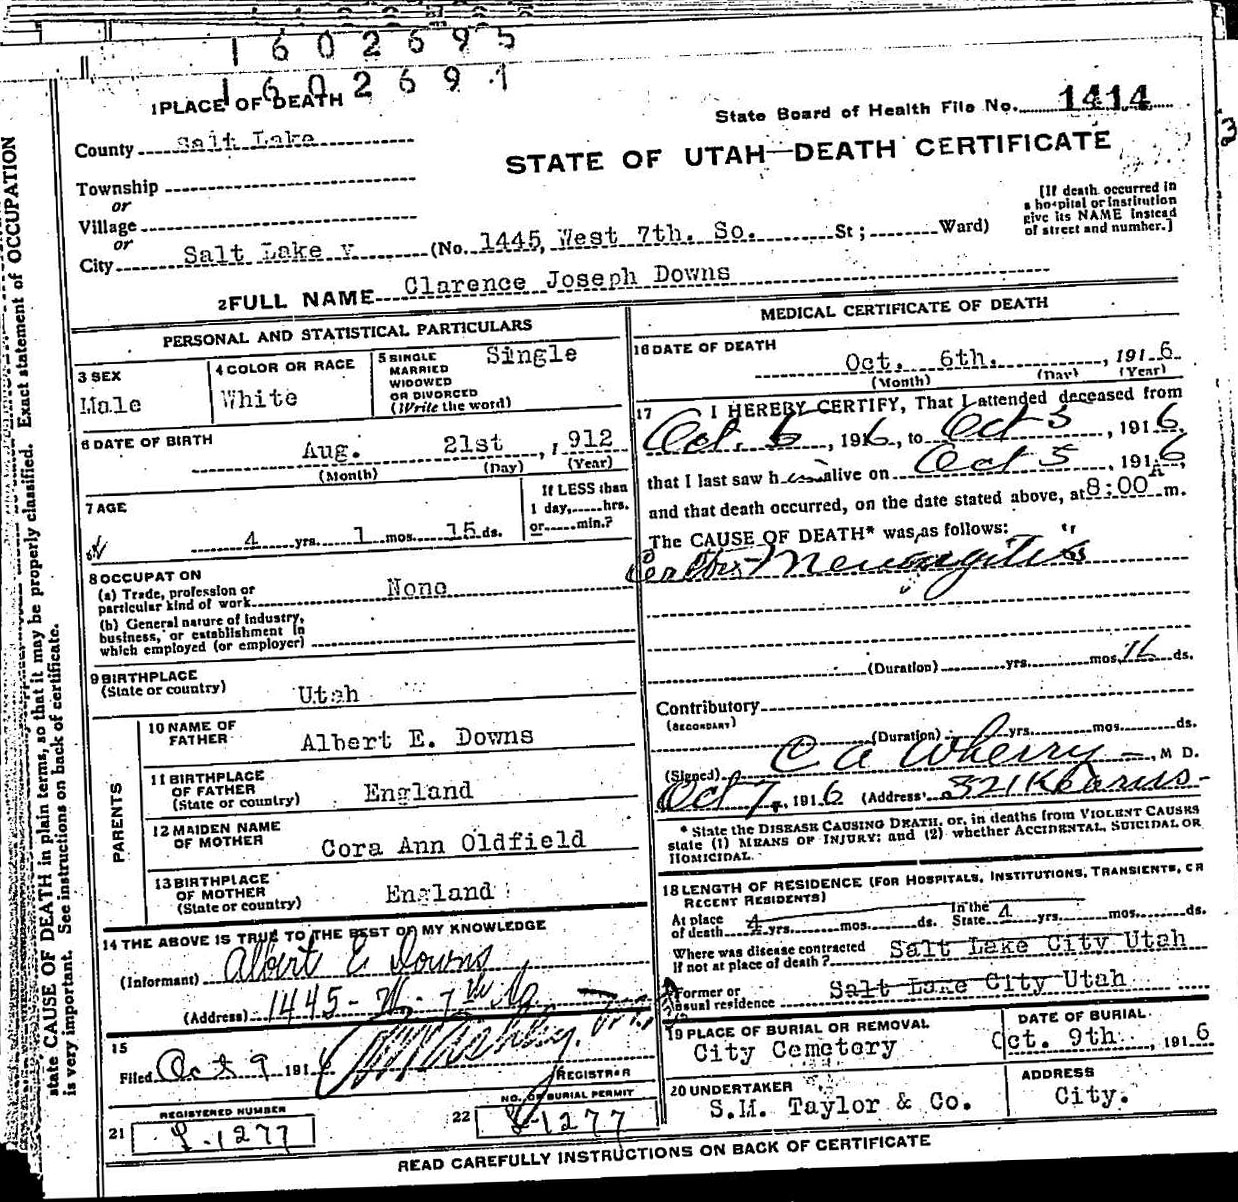 1602695
1602691
1 PLACE OF DEATH
State Board of Health File No. 1414
County Salt Lake
STATE OF UTAH—DEATH CERTIFICATE
Township
or
Village
or
City Salt Lake (No. 1445, West 7th. So. St; Ward)
[If death occurred in
a hospital or institution
give its NAME instead
of street and number.]
2 FULL NAME Clarence Joseph Downs
PERSONAL AND STATISTICAL PARTICULARS
3 SEX
Male
4 COLOR OR RACE
White
5 SINGLE
MARRIED
WIDOWED
OR DIVORCED
(Write the word)
Single
6 DATE OF BIRTH
Aug. 21st, 1912
(Month) (Day) (Year)
7 AGE
4 yrs. 1 mos. 15 ds.
If LESS than
1 day, hrs.
or min.?
8 OCCUPATION
(a) Trade, profession or
particular kind of work None
(b) General nature of industry,
business, or establishment in
which employed (or employer)
9 BIRTHPLACE
(State or country) Utah
PARENTS
10 NAME OF
FATHER Albert E. Downs
11 BIRTHPLACE
OF FATHER
(State or country) England
12 MAIDEN NAME
OF MOTHER Cora Ann Oldfield
13 BIRTHPLACE
OF MOTHER
(State or country) England
14 THE ABOVE IS TRUE TO THE BEST OF MY KNOWLEDGE
(Informant) Albert E Downs
(Address) 1445- W. 7th So.
15
Filed Oct 9 1916
REGISTRAR
REGISTERED NUMBER
21 1277
NO. OF BURIAL PERMIT
22 1277
MEDICAL CERTIFICATE OF DEATH
16 DATE OF DEATH
Oct. 6th. , 1916
(Month) (Day) (Year)
17 I HEREBY CERTIFY, That I attended deceased from
Oct. 6, 1916, to Oct 5, 1916,
that I last saw h alive on Oct 5, 1916,
and that death occurred, on the date stated above, at 8:00 A m.
The CAUSE OF DEATH* was as follows:
Meningitis
(Duration) yrs. mos. 16 ds.
Contributory
(SECONDARY)
(Duration) yrs. mos. ds.
(Signed) C A Wherry, M D.
Oct 7, 1916 (Address) 321 Kearns
* State the DISEASE CAUSING DEATH, or, in deaths from VIOLENT CAUSES
state (1) MEANS OF INJURY; and (2) whether ACCIDENTAL, SUICIDAL OR
HOMICIDAL.
18 LENGTH OF RESIDENCE (FOR HOSPITALS, INSTITUTIONS, TRANSIENTS, OR
RECENT RESIDENTS)
At place
of death 4 yrs. mos. ds. In the
State 4 yrs. mos. ds.
Where was disease contracted
if not at place of death? Salt Lake City Utah
Former or
usual residence Salt Lake City Utah
19 PLACE OF BURIAL OR REMOVAL
City Cemetery
DATE OF BURIAL
Oct. 9th , 1916
20 UNDERTAKER
S.M. Taylor & Co.
ADDRESS
City.
READ CAREFULLY INSTRUCTIONS ON BACK OF CERTIFICATE
state CAUSE OF DEATH in plain terms, so that it may be properly classified. Exact statement of OCCUPATION
is very important. See instructions on back of certificate.